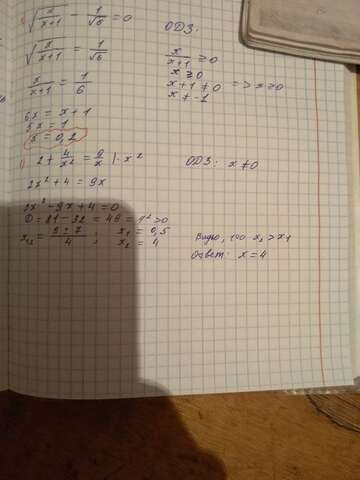 √(x/(x+1)) - 1/√6 = 0
ОДЗ:
√(x/(x+1)) = 1/√6
x/(x+1) ≥ 0
x ≥ 0
x+1 ≠ 0 => x ≥ 0
x ≠ -1
x/(x+1) = 1/6
6x = x + 1
5x = 1
x = 0,2
2 + 4/x² = 9/x | · x²
ОДЗ: x ≠ 0
2x² + 4 = 9x
2x² - 9x + 4 = 0
D = 81 - 32 = 49 = 7² > 0
x₁,₂ = (9 ± 7)/4 ; x₁ = 0,5
x₂ = 4
Видно, что x₂ > x₁
Ответ: x = 4